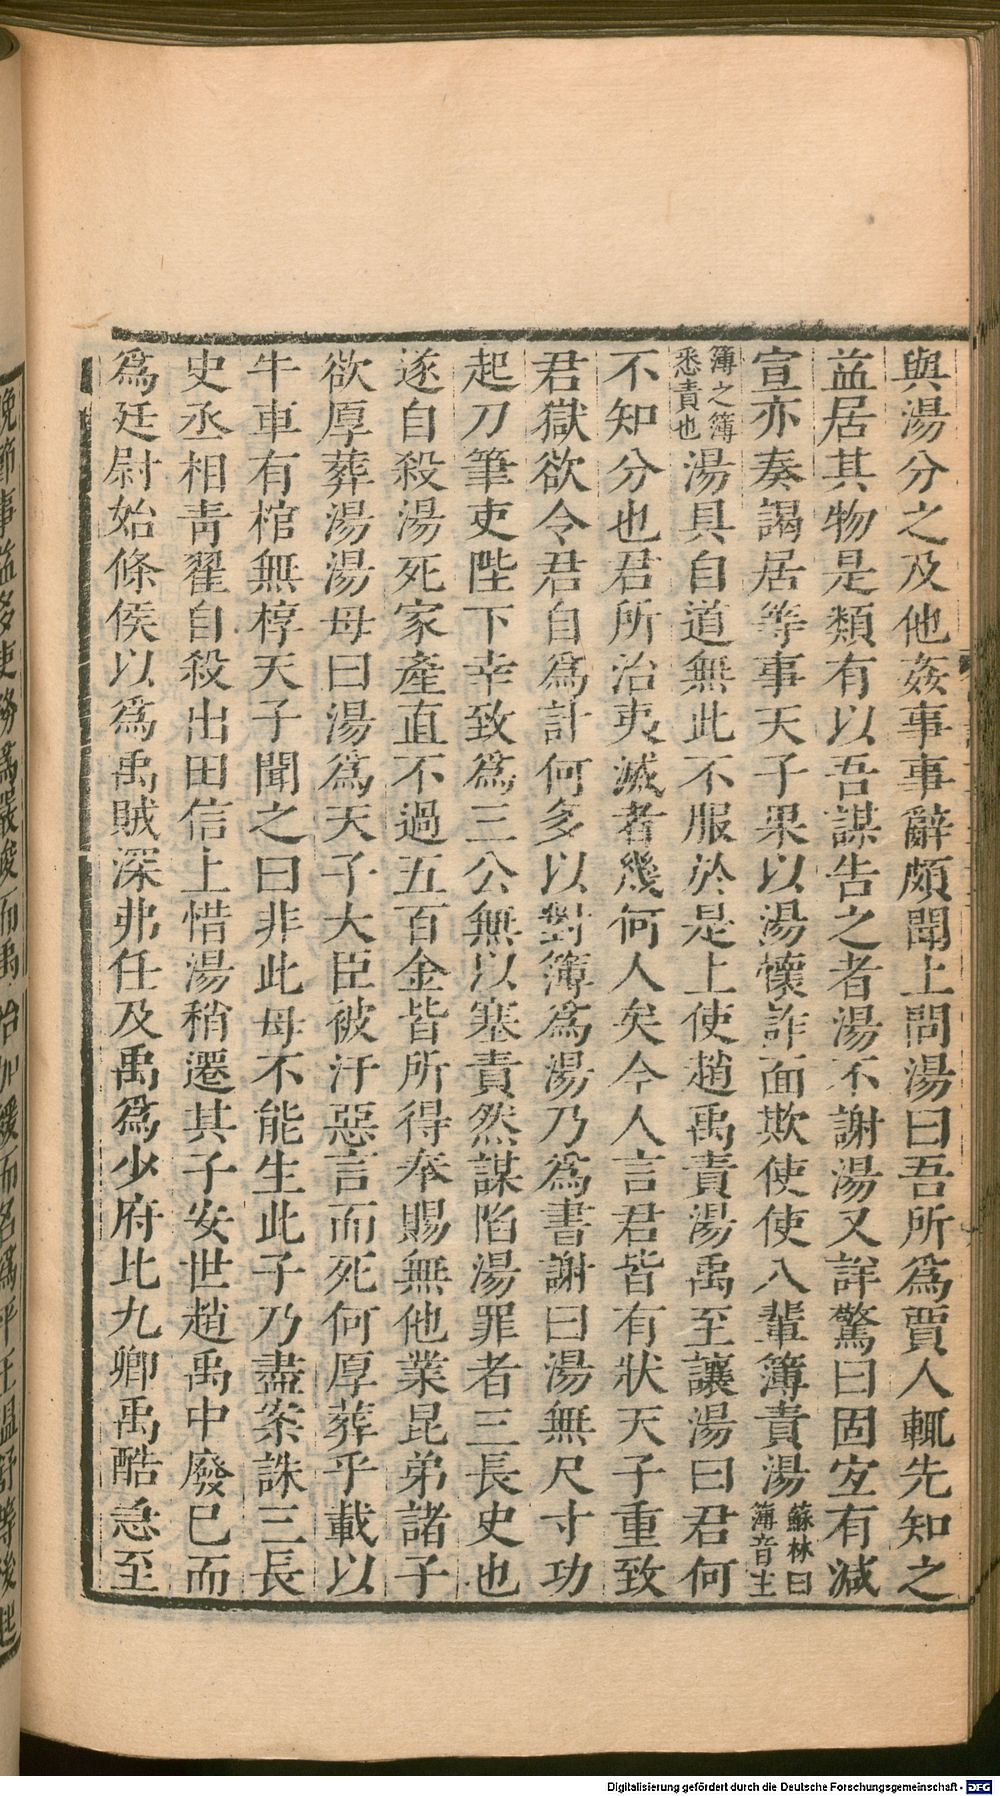 與湯分之及他姦事事辭頗聞上問湯曰吾所爲賈人輒先知之
益居其物是類有以吾謀告之者湯不謝湯又詳驚曰固宐有減
宣亦奏謁居等事天子果以湯懷詐面欺使使八輩簿責湯蘇林曰簿音主
簿之簿悉責也湯具自道無此不服於是上使趙禹責湯禹至讓湯曰君何
不知分也君所治夷滅者幾何人矣今人言君皆有狀天子重致
君獄欲令君自爲計何多以對簿爲湯乃爲書謝曰湯無尺寸功
起刀筆吏陛下幸致爲三公無以塞責然謀陷湯罪者三長史也
遂自殺湯死家產直不過五百金皆所得奉賜無他業昆弟諸子
欲厚葬湯湯母曰湯爲天子大臣被汙惡言而死何厚葬乎載以
牛車有棺無椁天子聞之曰非此母不能生此子乃盡案誅三長
史丞相靑翟自殺出田信上惜湯稍遷其子安世趙禹中廢已而
爲廷尉始條侯以爲禹賊深弗任及禹爲少府比九卿禹酷急至
晚節事益多吏務爲嚴峻而禹治加緩而名爲平王温舒等後起
Digitalisierung gefördert durch die Deutsche Forschungsgemeinschaft - DFG